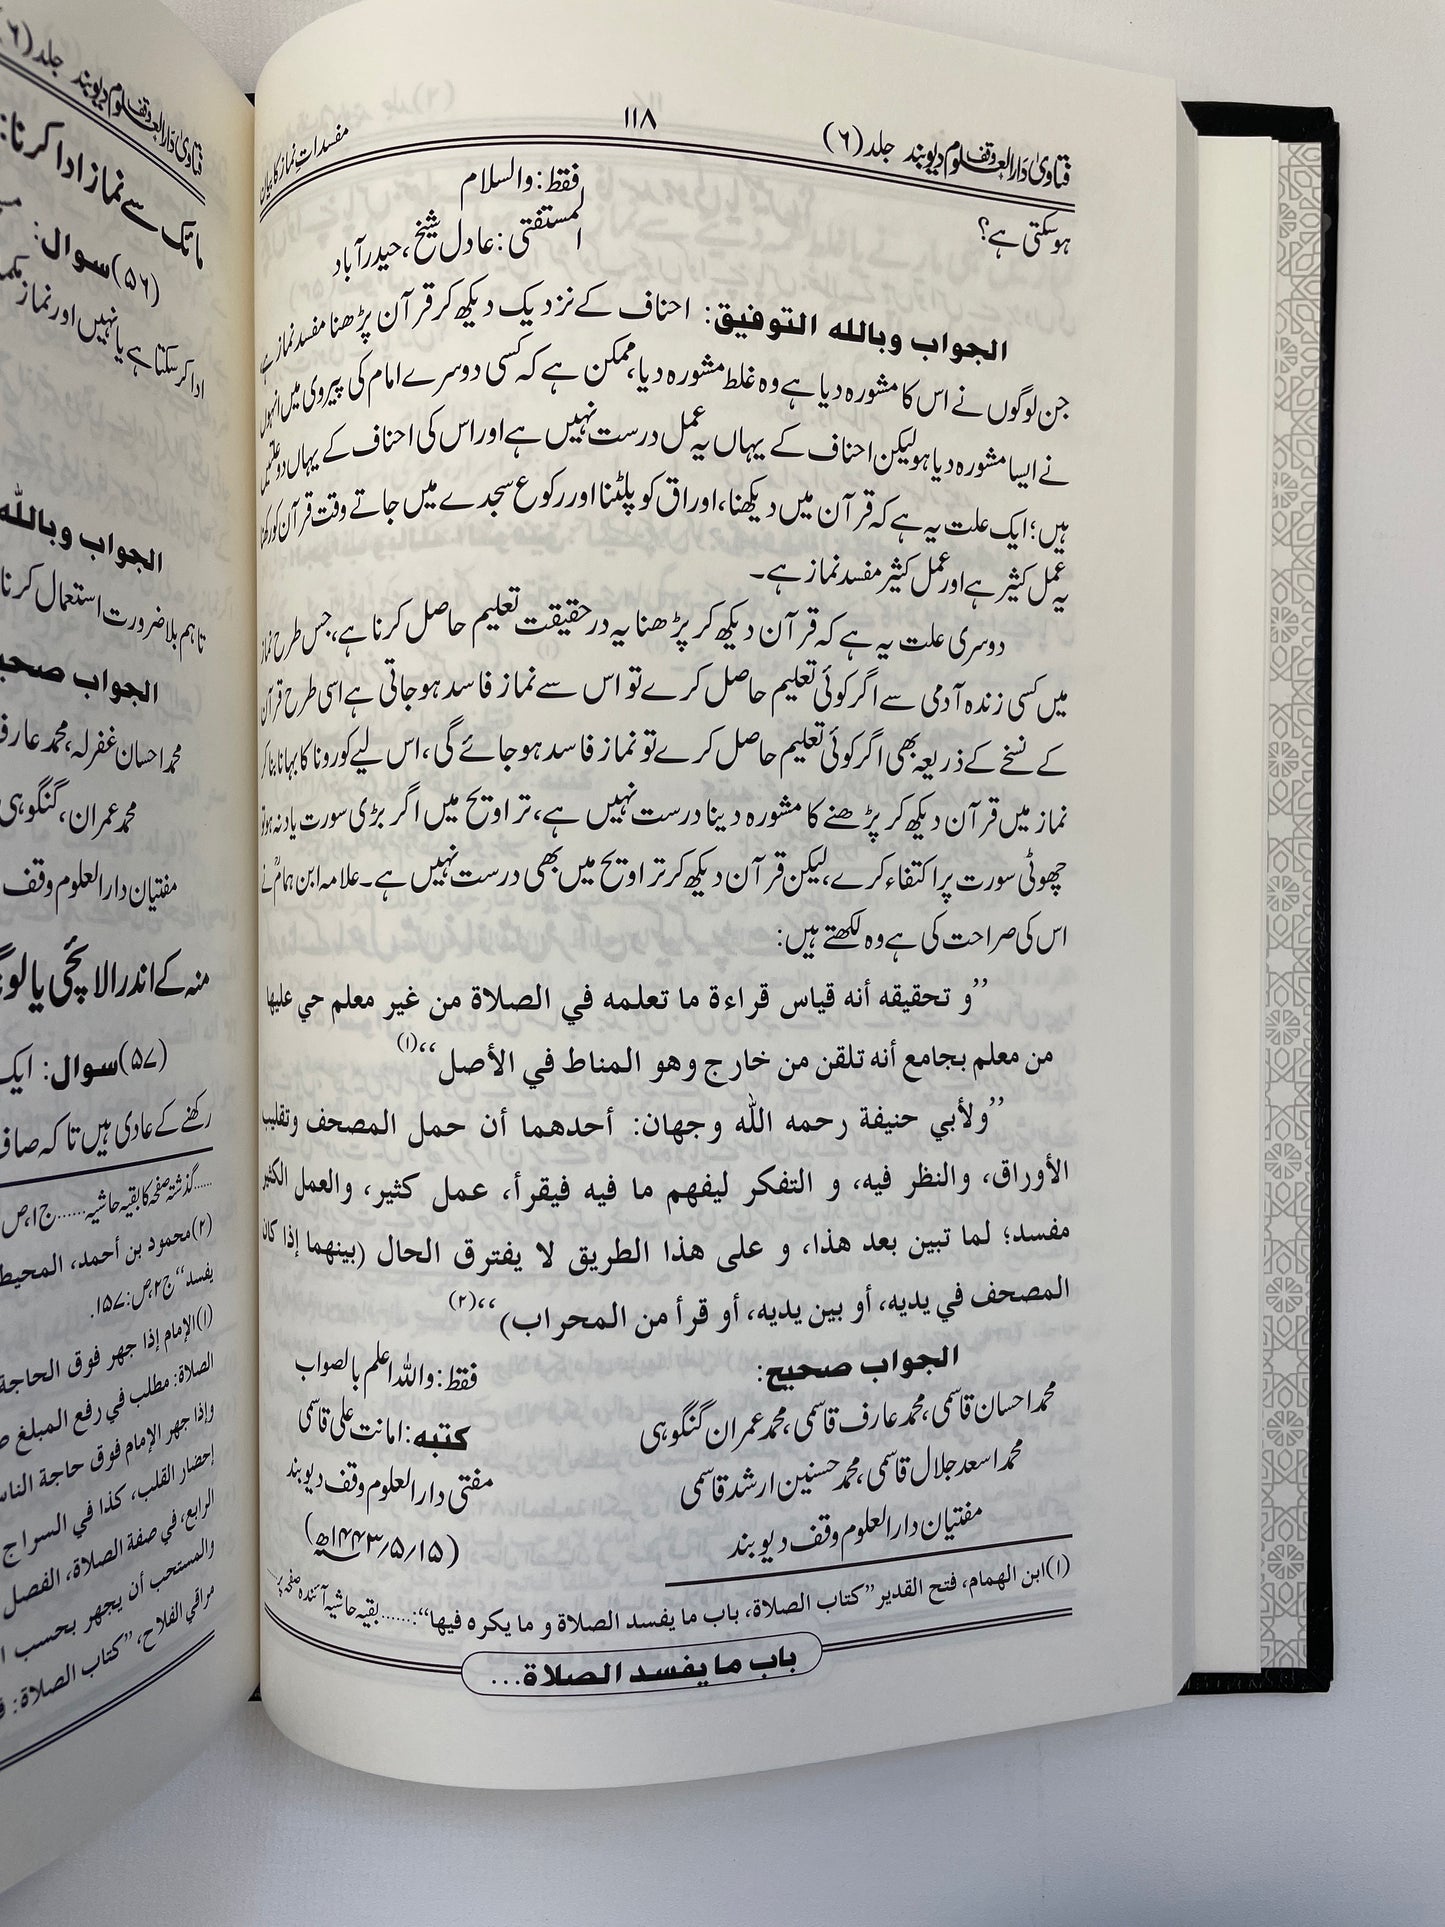 فتاویٰ دارالعلوم وقف دیوبند جلد (۶)
۱۱۸
مفسداتِ نماز کا بیان
ہوسکتی ہے؟
فقط: والسلام
المستفتی: عادل شیخ، حیدرآباد
الجواب وبالله التوفیق: احناف کے نزدیک دیکھ کر قرآن پڑھنا مفسد نماز ہے،
جن لوگوں نے اس کا مشورہ دیا ہے وہ غلط مشورہ دیا، ممکن ہے کہ کسی دوسرے امام کی پیروی میں انہوں
نے ایسا مشورہ دیا ہو لیکن احناف کے یہاں یہ عمل درست نہیں ہے اور اس کی احناف کے یہاں دو علتیں
ہیں؛ ایک علت یہ ہے کہ قرآن میں دیکھنا، اوراق کو پلٹنا اور رکوع سجدے میں جاتے وقت قرآن کو رکھنا
یہ عمل کثیر ہے اور عمل کثیر مفسد نماز ہے۔
دوسری علت یہ ہے کہ قرآن دیکھ کر پڑھنا یہ درحقیقت تعلیم حاصل کرنا ہے، جس طرح نماز
میں کسی زندہ آدمی سے اگر کوئی تعلیم حاصل کرے تو اس سے نماز فاسد ہوجاتی ہے اسی طرح قرآن
کے نسخے کے ذریعہ بھی اگر کوئی تعلیم حاصل کرے تو نماز فاسد ہوجائے گی، اس لیے کورونا کا بہانا بنا کر
نماز میں قرآن دیکھ کر پڑھنے کا مشورہ دینا درست نہیں ہے، تراویح میں اگر بڑی سورت یاد نہ ہو تو
چھوٹی سورت پر اکتفاء کرے، لیکن قرآن دیکھ کر تراویح میں بھی درست نہیں ہے۔ علامہ ابن ہمامؒ نے
اس کی صراحت کی ہے وہ لکھتے ہیں:
’’و تحقيقه أنه قياس قراءة ما تعلمه في الصلاة من غير معلم حي عليها
من معلم بجامع أنه تلقن من خارج وهو المناط في الأصل‘‘(۱)
’’ولأبي حنيفة رحمه الله وجهان: أحدهما أن حمل المصحف وتقليب
الأوراق، والنظر فيه، و التفكر ليفهم ما فيه فيقرأ، عمل كثير، والعمل الكثير
مفسد؛ لما تبين بعد هذا، و على هذا الطريق لا يفترق الحال (بينهما إذا كان
المصحف في يديه، أو بين يديه، أو قرأ من المحراب)‘‘(۲)
الجواب صحیح:
محمد احسان قاسمی، محمد عارف قاسمی، محمد عمران گنگوہی
محمد اسعد جلال قاسمی، محمد حسنین ارشد قاسمی
مفتیان دارالعلوم وقف دیوبند
فقط: واللہ اعلم بالصواب
کتبه: امانت علی قاسمی
مفتی دارالعلوم وقف دیوبند
(۱۵؍۵؍۱۴۴۳ھ)
(۱) ابن الهمام، فتح القدير ’’كتاب الصلاة، باب ما يفسد الصلاة و ما يكره فيها‘‘:......بقیہ حاشیہ آئندہ صفحہ پر....
باب ما يفسد الصلاة...
فتاویٰ دارالعلوم وقف دیوبند جلد (۶)
سے نماز ادا کرنا:
(۵۶) سوال:
ادا کرسکتا ہے یا نہیں اور نماز
الجواب وبالله
تاہم بلا ضرورت استعمال کرنا
الجواب
محمد احسان غفرلہ، محمد
محمد عمران، گنگوہی
مفتیان دارالعلوم وقف
منہ کے اندر الائچی یا
(۵۷) سوال: ایک
رکھنے کے عادی ہیں تاکہ
......گذشتہ صفحہ کا بقیہ حاشیہ...... ج۱، ص
(۲) محمود بن أحمد، المحيط
يفسد‘‘ ج۲، ص: ۱۵۷.
(۱) الإمام إذا جهر فوق الحاجة
الصلاة: مطلب في رفع المبلغ
وإذا جهر الإمام فوق حاجة الناس
إحضار القلب، كذا في السراج
الرابع، في صفة الصلاة، الفصل
والمستحب أن يجهر بحسب
مراقي الفلاح، ’’كتاب الصلاة: